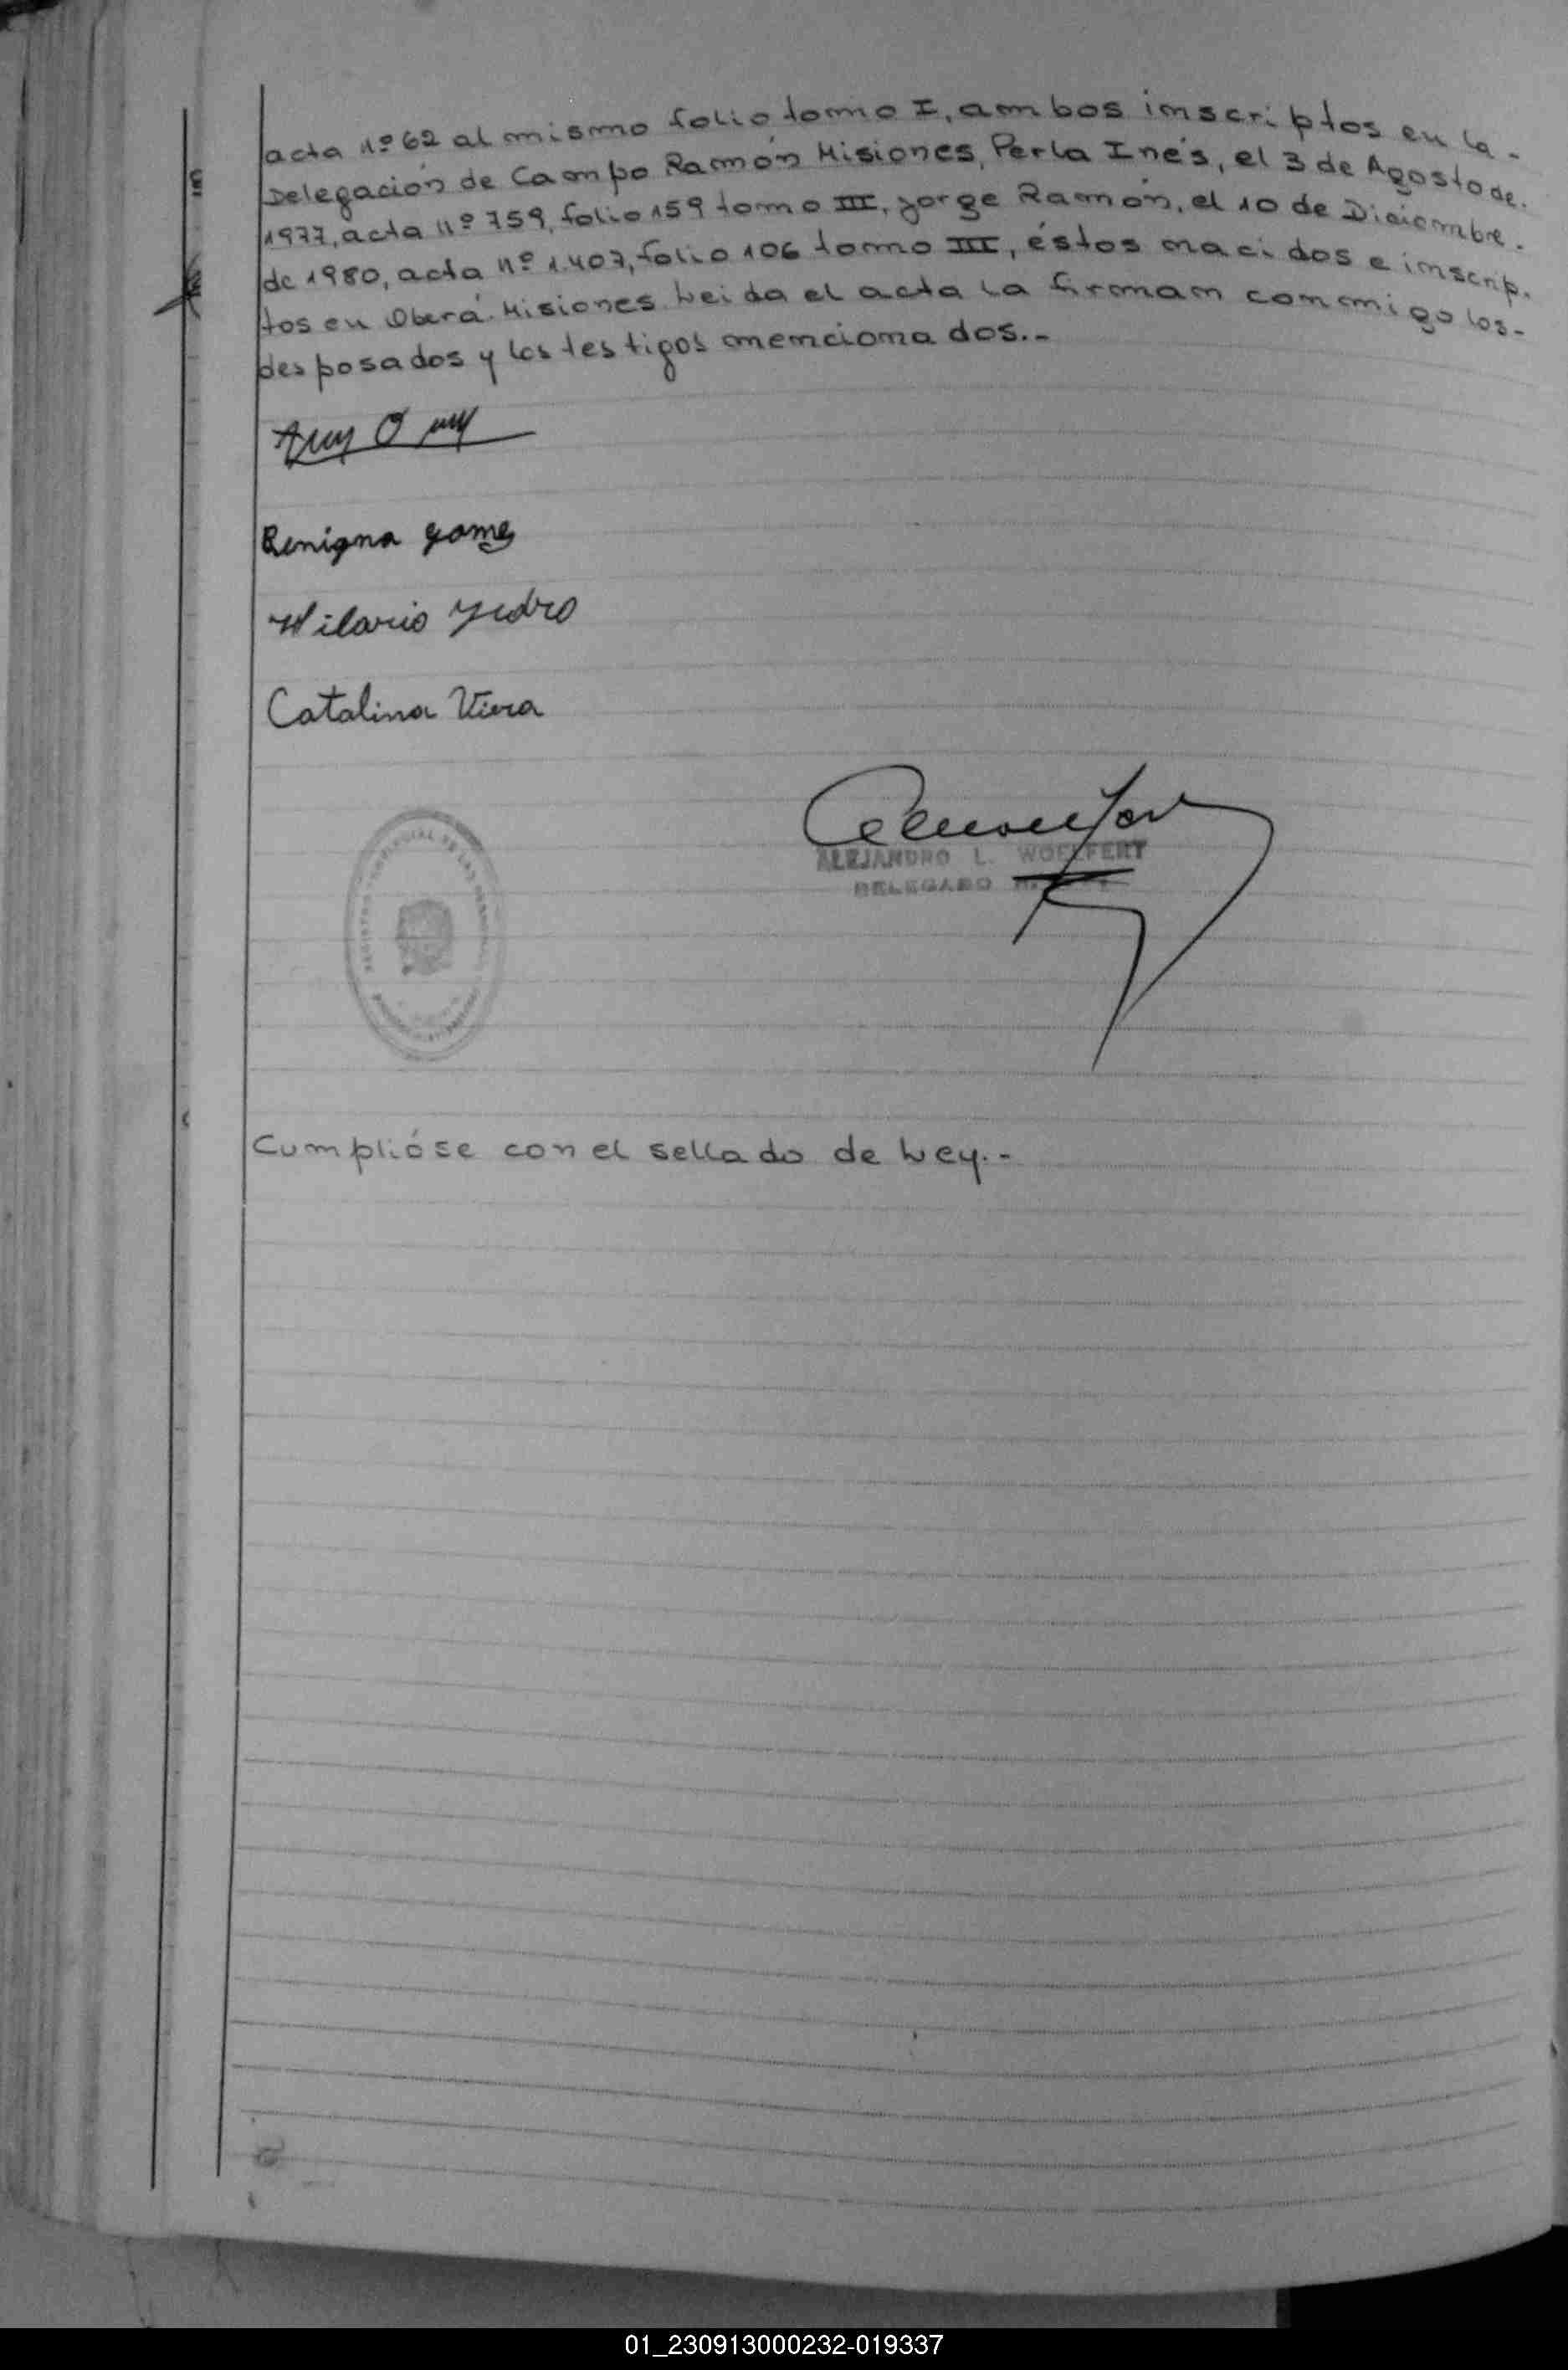 acta nº 62 al mismo folio tomo I, ambos inscriptos en la -
Delegación de Campo Ramón Misiones, Perla Inés, el 3 de Agosto de.
1977, acta nº 759, folio 159 tomo III, Jorge Ramón, el 10 de Diciembre.
de 1980, acta nº 1.407, folio 106 tomo III, éstos nacidos e inscrip.
tos en Oberá. Misiones. Leida el acta la firman conmigo los-
desposados y los testigos mencionados.-
Benigna gomes
Hilario
Catalina Viera
ALEJANDRO L. WOELFERT
DELEGADO
Cumplióse con el sellado de Ley.-
01_230913000232-019337